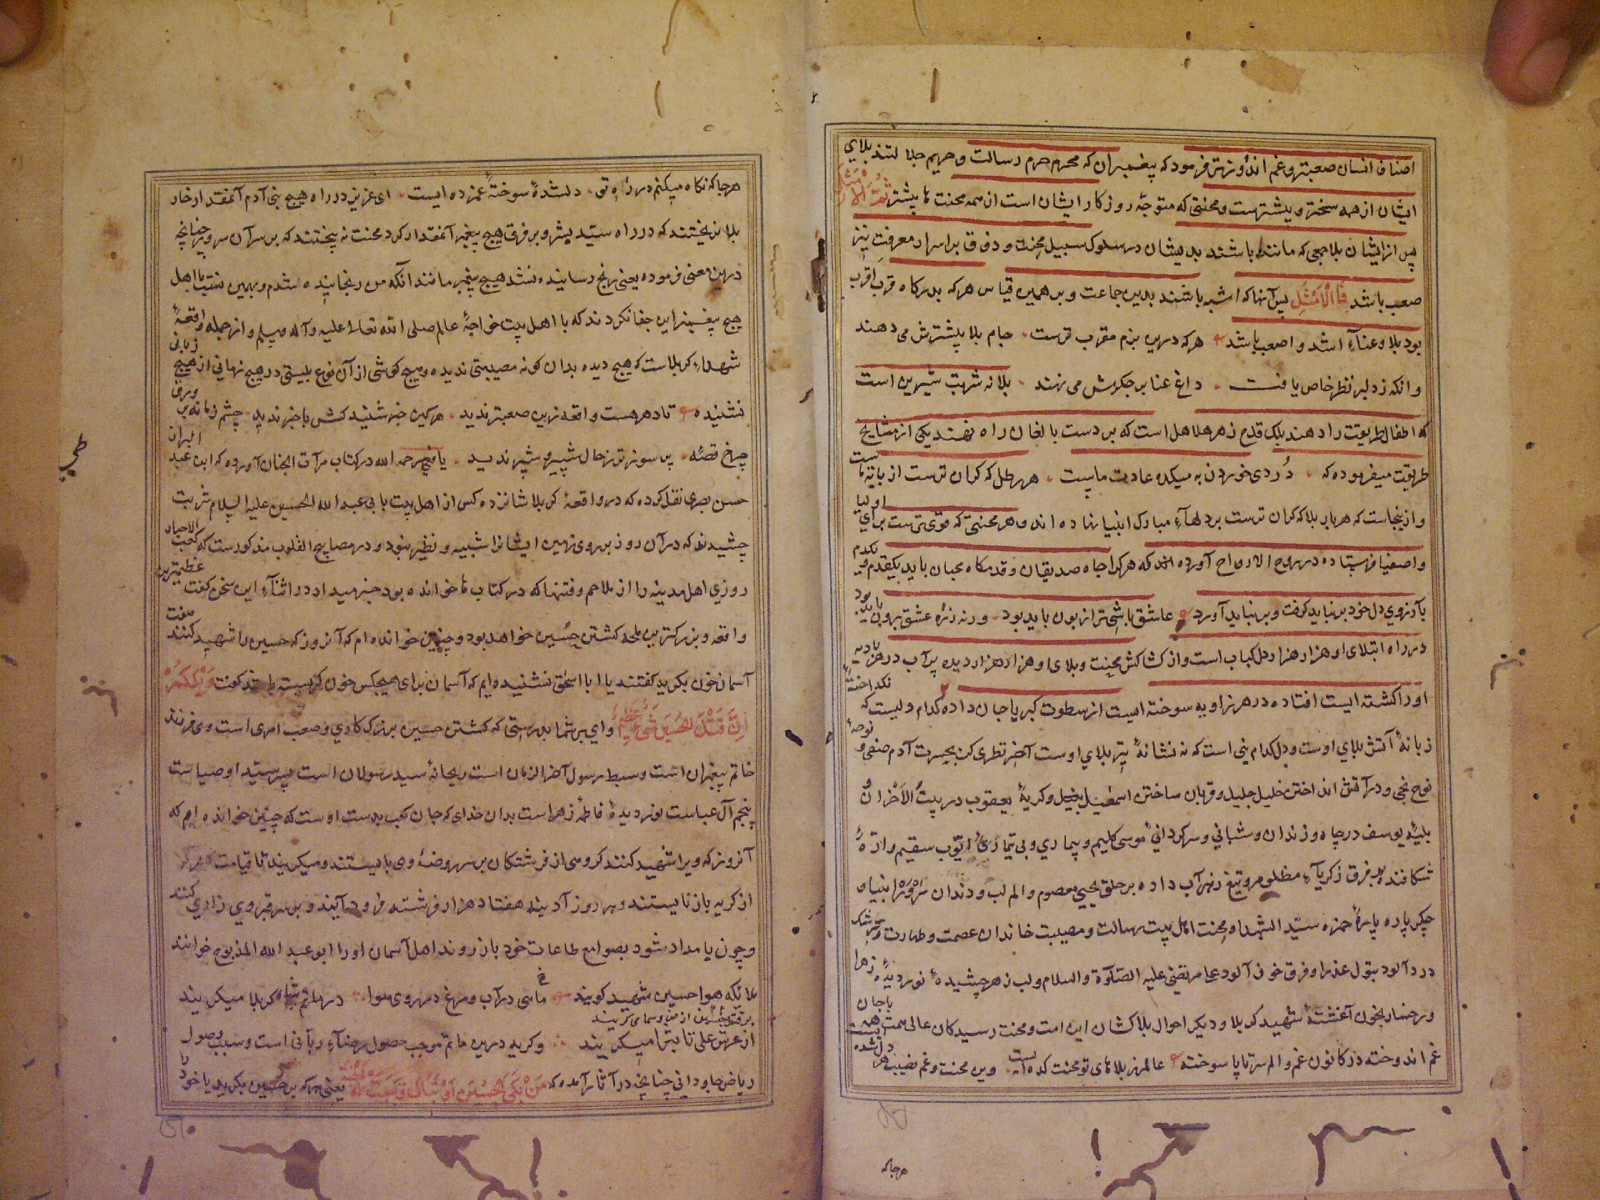 اصناف انسان صعبتر و غم اندوزتر فرمود که پیغمبران که محرم حرم رسالت و حریم جلالتند بلای
ایشان از همه سختتر و بیشترست و محنتی که متوجه روزگار ایشان است از همه محنت ها بیشتر ثُمَّ الْاَمْثَل
پس از ایشان بلا بجمعی که مانند باشند بدیشان در سلوک سبیل محنت و ذوق بر اسرار معرفت نیز
صعب باشد فَالْاَمْثَلِ پس آنها که اشبه باشند بدین جماعت و بر همین قیاس هر که بدرکاه قرب اقرب
بود بلا و عناء او اشد و اصعب باشد هر که درین بزم مقرب ترست جام بلا بیشترش می دهند
وانکه ز دلبر نظر خاص یافت داغ عنا بر جکرش می نهند بلا نه شربت شیرین است
که اطفال طریقت را دهند بلک قدح زهر هلاهل است که بر دست بالغان راه نهند یکی از مشایخ
طریقت میفرموده که دُردی خوردن به میکده عادت ماست هر رطل که کران ترست از بابه ماست
و از ینجاست که هر بار بلا که کران ترست بر دلهاء مبارک انبیا نهاده اند و هر محنتی که قوی ترست برای اولیا
و اصفیا فرستاده در روح الارواح آورده اند که هر کرا جاه صدیقان و قدمکاه محبان باید یکقدم و یکدم
بآرزوی دل خود بر نباید گرفت و بر نباید آورد عاشق باشی تر از بون باید بود ورنه زره عشق برون باید بود
در راه ابتلای او هزار هزار دل کباب است و از کشاکش محنت و بلای او هزار هزار دیده پر آب در هر بادیه
او را کشته ایست افتاده در هر زاویه سوخته ایست از سطوت کبریا جان داده کدام ولیست که نکداخته
زبانه آتش بلای اوست و دل کدام نبی است که نه نشانه تیر بلای اوست آخر نظری کن بحیرت آدم صفی و نوحه
نوح نجی و در آتش انداختن خلیل جلیل و قربان ساختن اسمعیل نبیل و کریه یعقوب در بیت الاحزان و
بلیه یوسف در چاه و زندان و شبانی و سرکردانی موسی کلیم و بیماری و بی تیماری ایوب سقیم و اره
شکافنده بر فرق زکریاء مظلوم و تیغ زهر آب داده بر حلق یحیی معصوم و الم لب و دندان سرور انبیاء و
جکر پاره پاره حمزه سید الشهدا و محنت اهل بیت رسالت و مصیبت خاندان عصمت و طهارت و سرشک
درد آلود بتول عذرا و فرق خون آلود علی مرتضی علیه الصلوة والسلام و لب زهر چشیده نور دیده زهرا
و رخسار بخون آغشته شهید کربلا و دیگر احوال بلاکشان این امت و محنت رسیدکان عالی همت همه باجان
غم اندوخته در کانون غم و الم سرتاپا سوخته عالم ز بلاهای تو محنت کده ایست وین محنت و غم نصیب هر دلشده ایست
هرجا که
هرجا که نکاه میکنم در راه تو دلشده سوخته غمزده ایست ای عزیز در راه هیچ بنی آدم آنمقدار خار
بلا نریختند که در راه سید بشر و بر فرق هیچ پیغمبر آنمقدار کرد محنت نه بیختند که بر سر آن سرور چنانچه
درین معنی فرموده یعنی رنج رسانیده نشد هیچ پیغمبر مانند آنکه من رنجانیده شدم و بهمین نسبت با اهل
هیچ پیغمبر این جفا نکردند که با اهل بیت خواجه عالم صلی الله تعالی علیه و آله وسلم و از جمله واقعه
شهداء کربلاست که هیچ دیده بدان کونه مصیبتی ندیده و هیچ کوشی از آن نوع بلیتی در هیچ زمانی از هیچ زبانی
نشنیده تا دهرهست واقعه زین صعبتر ندید هر کین خبر شنید کسش باخبر ندید چشم زمانه بر ورق
چرخ قصه پر سوز تر ز حال شبیر و شبر ندید یافعی رحمه الله در کتاب مرآت الجنان آورده که ابن عبد البر از
حسن بصری نقل کرده که در واقعه کربلا شانزده کس از اهل بیت با بی عبد الله الحسین علیه السلام شربت
چشیدند که در آن روز بر روی زمین ایشانرا شبیه و نظیر نبود و در مصابیح القلوب مذکورست که کعب الاحبار
روزی اهل مدینه را از ملاحم و فتنها که در کتاب ها خوانده بود خبر میداد در اثناء این سخن گفت عظیمترین
واقعه و بزرکترین ملحمه کشتن حسین خواهد بود و چنین خوانده ام که آنروز که حسین را شهید کنند هفت
آسمان خون بکرید گفتند یا ابا اسحق نشنیده ایم که آسمان برای هیچکس خون کریسته باشد گفت وَیْلَکُمْ
اِنَّ قَتْلَ الْحُسَیْنِ شَیْءٌ عَظِیمٌ وای بر شما بدرستی که کشتن حسین بزرک کاری و صعب امری است وی فرزند
خاتم پیغمبران است و سبط رسول آخر الزمان است ریحانه سید رسولان است سید اوصیاست
پنجم آل عباست نور دیده فاطمه زهراست بدان خدای که جان کعب بدست اوست که چنین خوانده ام که
آنروز که ویرا شهید کنند کروهی از فرشتکان بر سر روضه وی بایستند و میکریند تا قیامت
از کریه باز نایستند و هر روز آدینه هفتاد هزار فرشته فرود آیند و بر سر قبر وی زاری کنند
و چون بامداد شود بصوامع طاعات خود باز روند اهل آسمان او را ابو عبد الله المذبوح خوانند
ملائکه هوا حسین شهید گویند ماهی در آب و مرغ در روی هوا در ماتم شاه کربلا میکریند
از عرش علی تا بثرا میکریند و کریه درین ماتم موجب حصول رضاء ربانی است و سبب وصول
ریاض جاودانی چنانچه در آثار آمده که مَنْ بَکَی عَلَی الْحُسَیْنِ اَوْ تَبَاکَی وَجَبَتْ لَهُ الْجَنَّة یعنی هر که بر حسین بکرید یا خود را